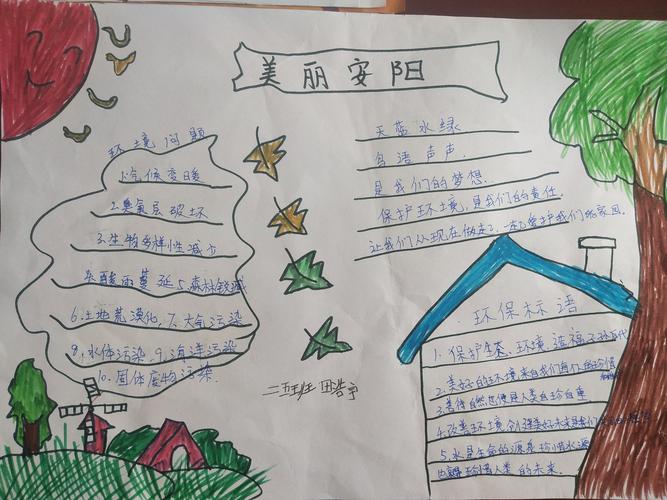 美丽安阳
环境问题
1.气候变暖
2.臭氧层破坏
3.生物多样性减少
4.酸雨蔓延 5.森林锐减
6.土地荒漠化, 7.大气污染
8.水体污染, 9.海洋污染
10.固体废物污染.
天蓝水绿
鸟语声声.
是我们的梦想.
保护环境,是我们的责任.
让我们从现在做起,一起爱护我们的家园.
二五班 田浩宇
环保标语
1.保护生态环境,造福子孙后代
2.美好的环境来自我们每个的珍惜
3.善待自然也便是人类自珍自重
4.改善环境,创
5.水是生命的源泉珍惜水源
也就是珍惜人类的未来.